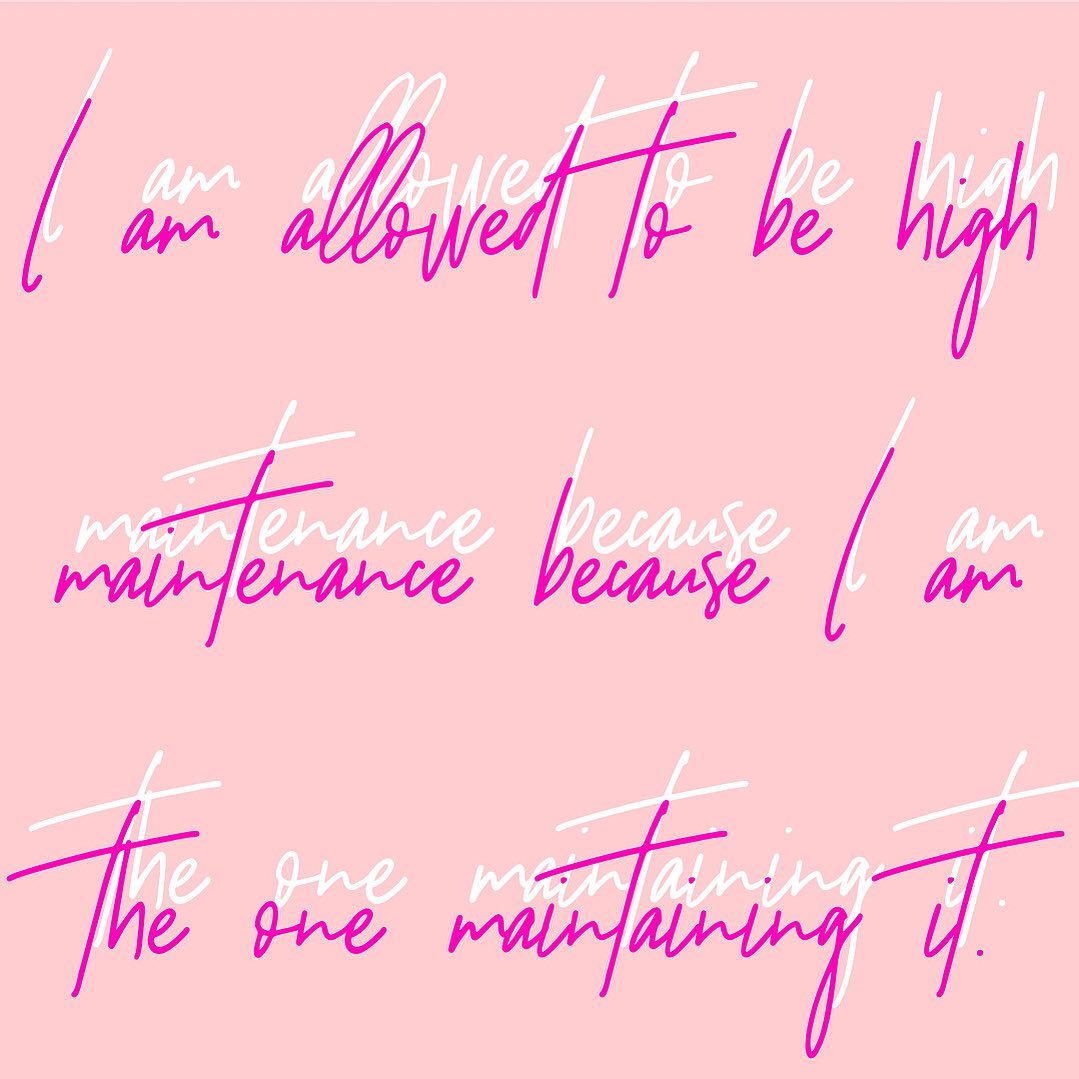 I am allowed to be high
maintenance because I am
the one maintaining it.